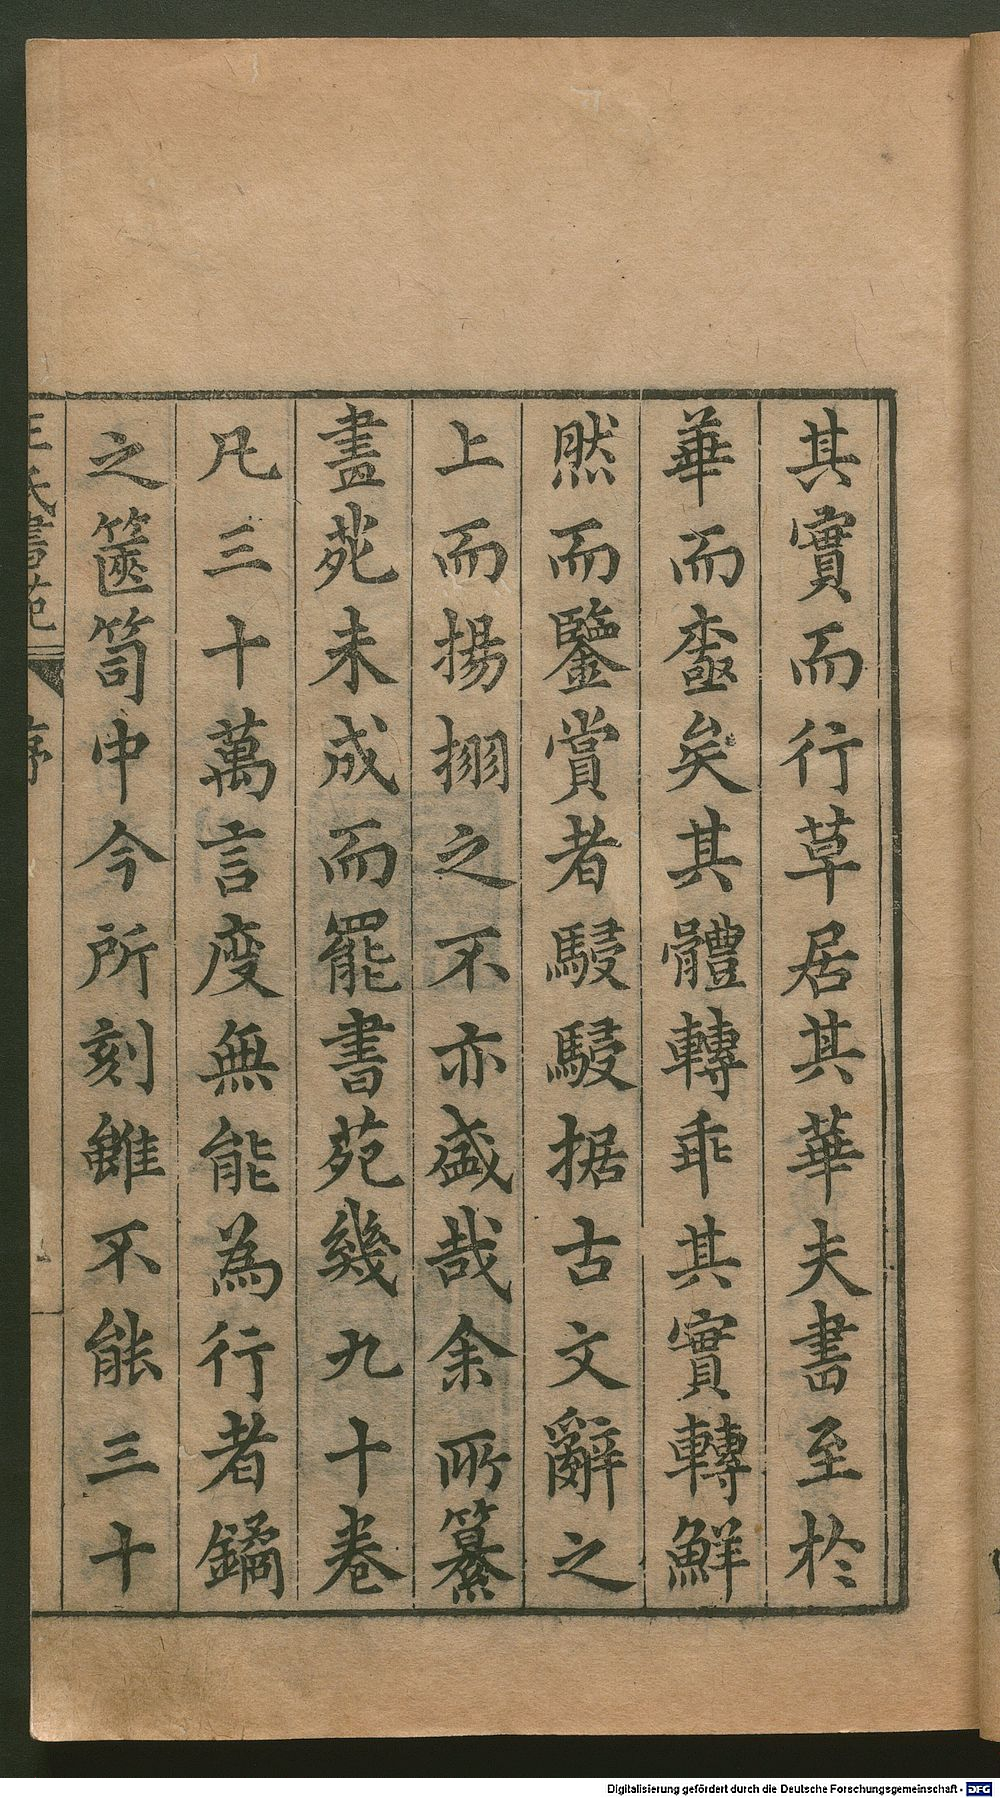 其實而行草居其華夫書至於
華而壷矣其體轉乖其實轉鮮
然而鑒賞者駸駸据古文辭之
上而揚搦之不亦盛哉余所纂
畫苑未成而罷書苑幾九十卷
凡三十萬言度無能為行者鐍
之篋笥中今所刻雖不能三十
王氏書苑 序
Digitalisierung gefördert durch die Deutsche Forschungsgemeinschaft - DFG